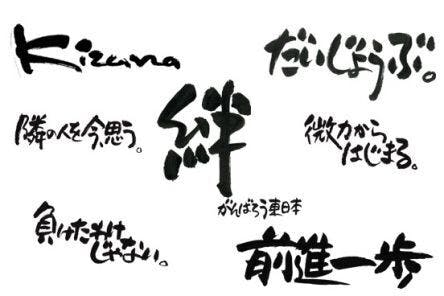 Kizuna
だいじょうぶ。
隣の人を今、思う。
絆
微力から
はじまる。
がんばろう東日本
負けたわけ
じゃない。
前進一歩